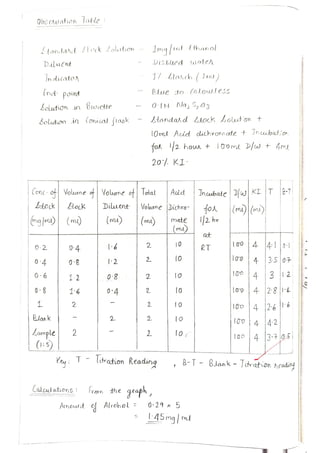 Observation Table :
Standard Stock Solution - 1mg/ml Ethanol
Diluent - Distilled water
Indicator - 1% Starch (1ml)
End point - Blue to Colourless
Solution in Burette - 0.1N Na2S2O3
Solution in Conical flask - Standard Stock Solution +
10ml Acid dichromate + Incubation
for 1/2 hour + 100ml D/w + 4ml
20% KI.
Conc. of Stock (mg/ml) Volume of Stock (ml) Volume of Diluent (ml) Total Volume (ml) Acid Dichromate (ml) Incubate for 1/2 hr at RT D/w (ml) KI (ml) T B-T
0.2 0.4 1.6 2 10 100 4 4.1 0.1
0.4 0.8 1.2 2 10 100 4 3.5 0.7
0.6 1.2 0.8 2 10 100 4 3 1.2
0.8 1.6 0.4 2 10 100 4 2.8 1.4
1 2 - 2 10 100 4 2.6 1.6
Blank - 2 2 10 100 4 4.2
Sample (1:5) 2 - 2 10 100 4 3.7 0.5
Key: T - Titration Reading , B-T - Blank - Titration Reading
Calculations : From the graph,
Amount of Alcohol = 0.29 × 5
= 1.45 mg/ml